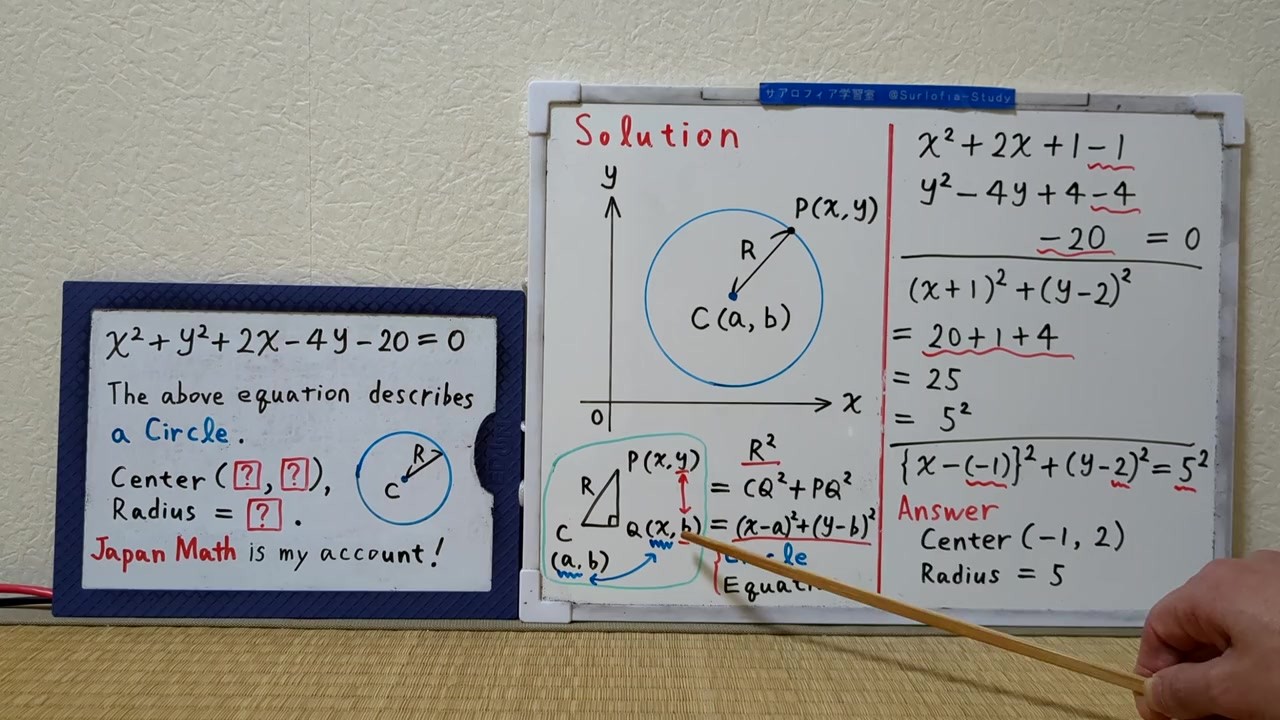 x²+y²+2x−4y−20=0
The above equation describes
a Circle.
Center (?, ?),
Radius = ?.
R
C
Japan Math is my account!
サアロフィア学習室 @Surlofia-Study
Solution
y
P(x,y)
R
C(a,b)
0
x
P(x,y)
R
C
Q(x,b)
(a,b)
R²
= CQ²+PQ²
= (x-a)²+(y-b)²
x²+2x+1−1
y²−4y+4−4
−20 = 0
(x+1)²+(y−2)²
= 20+1+4
= 25
= 5²
{x−(−1)}²+(y−2)²=5²
Answer
Center (−1, 2)
Radius = 5